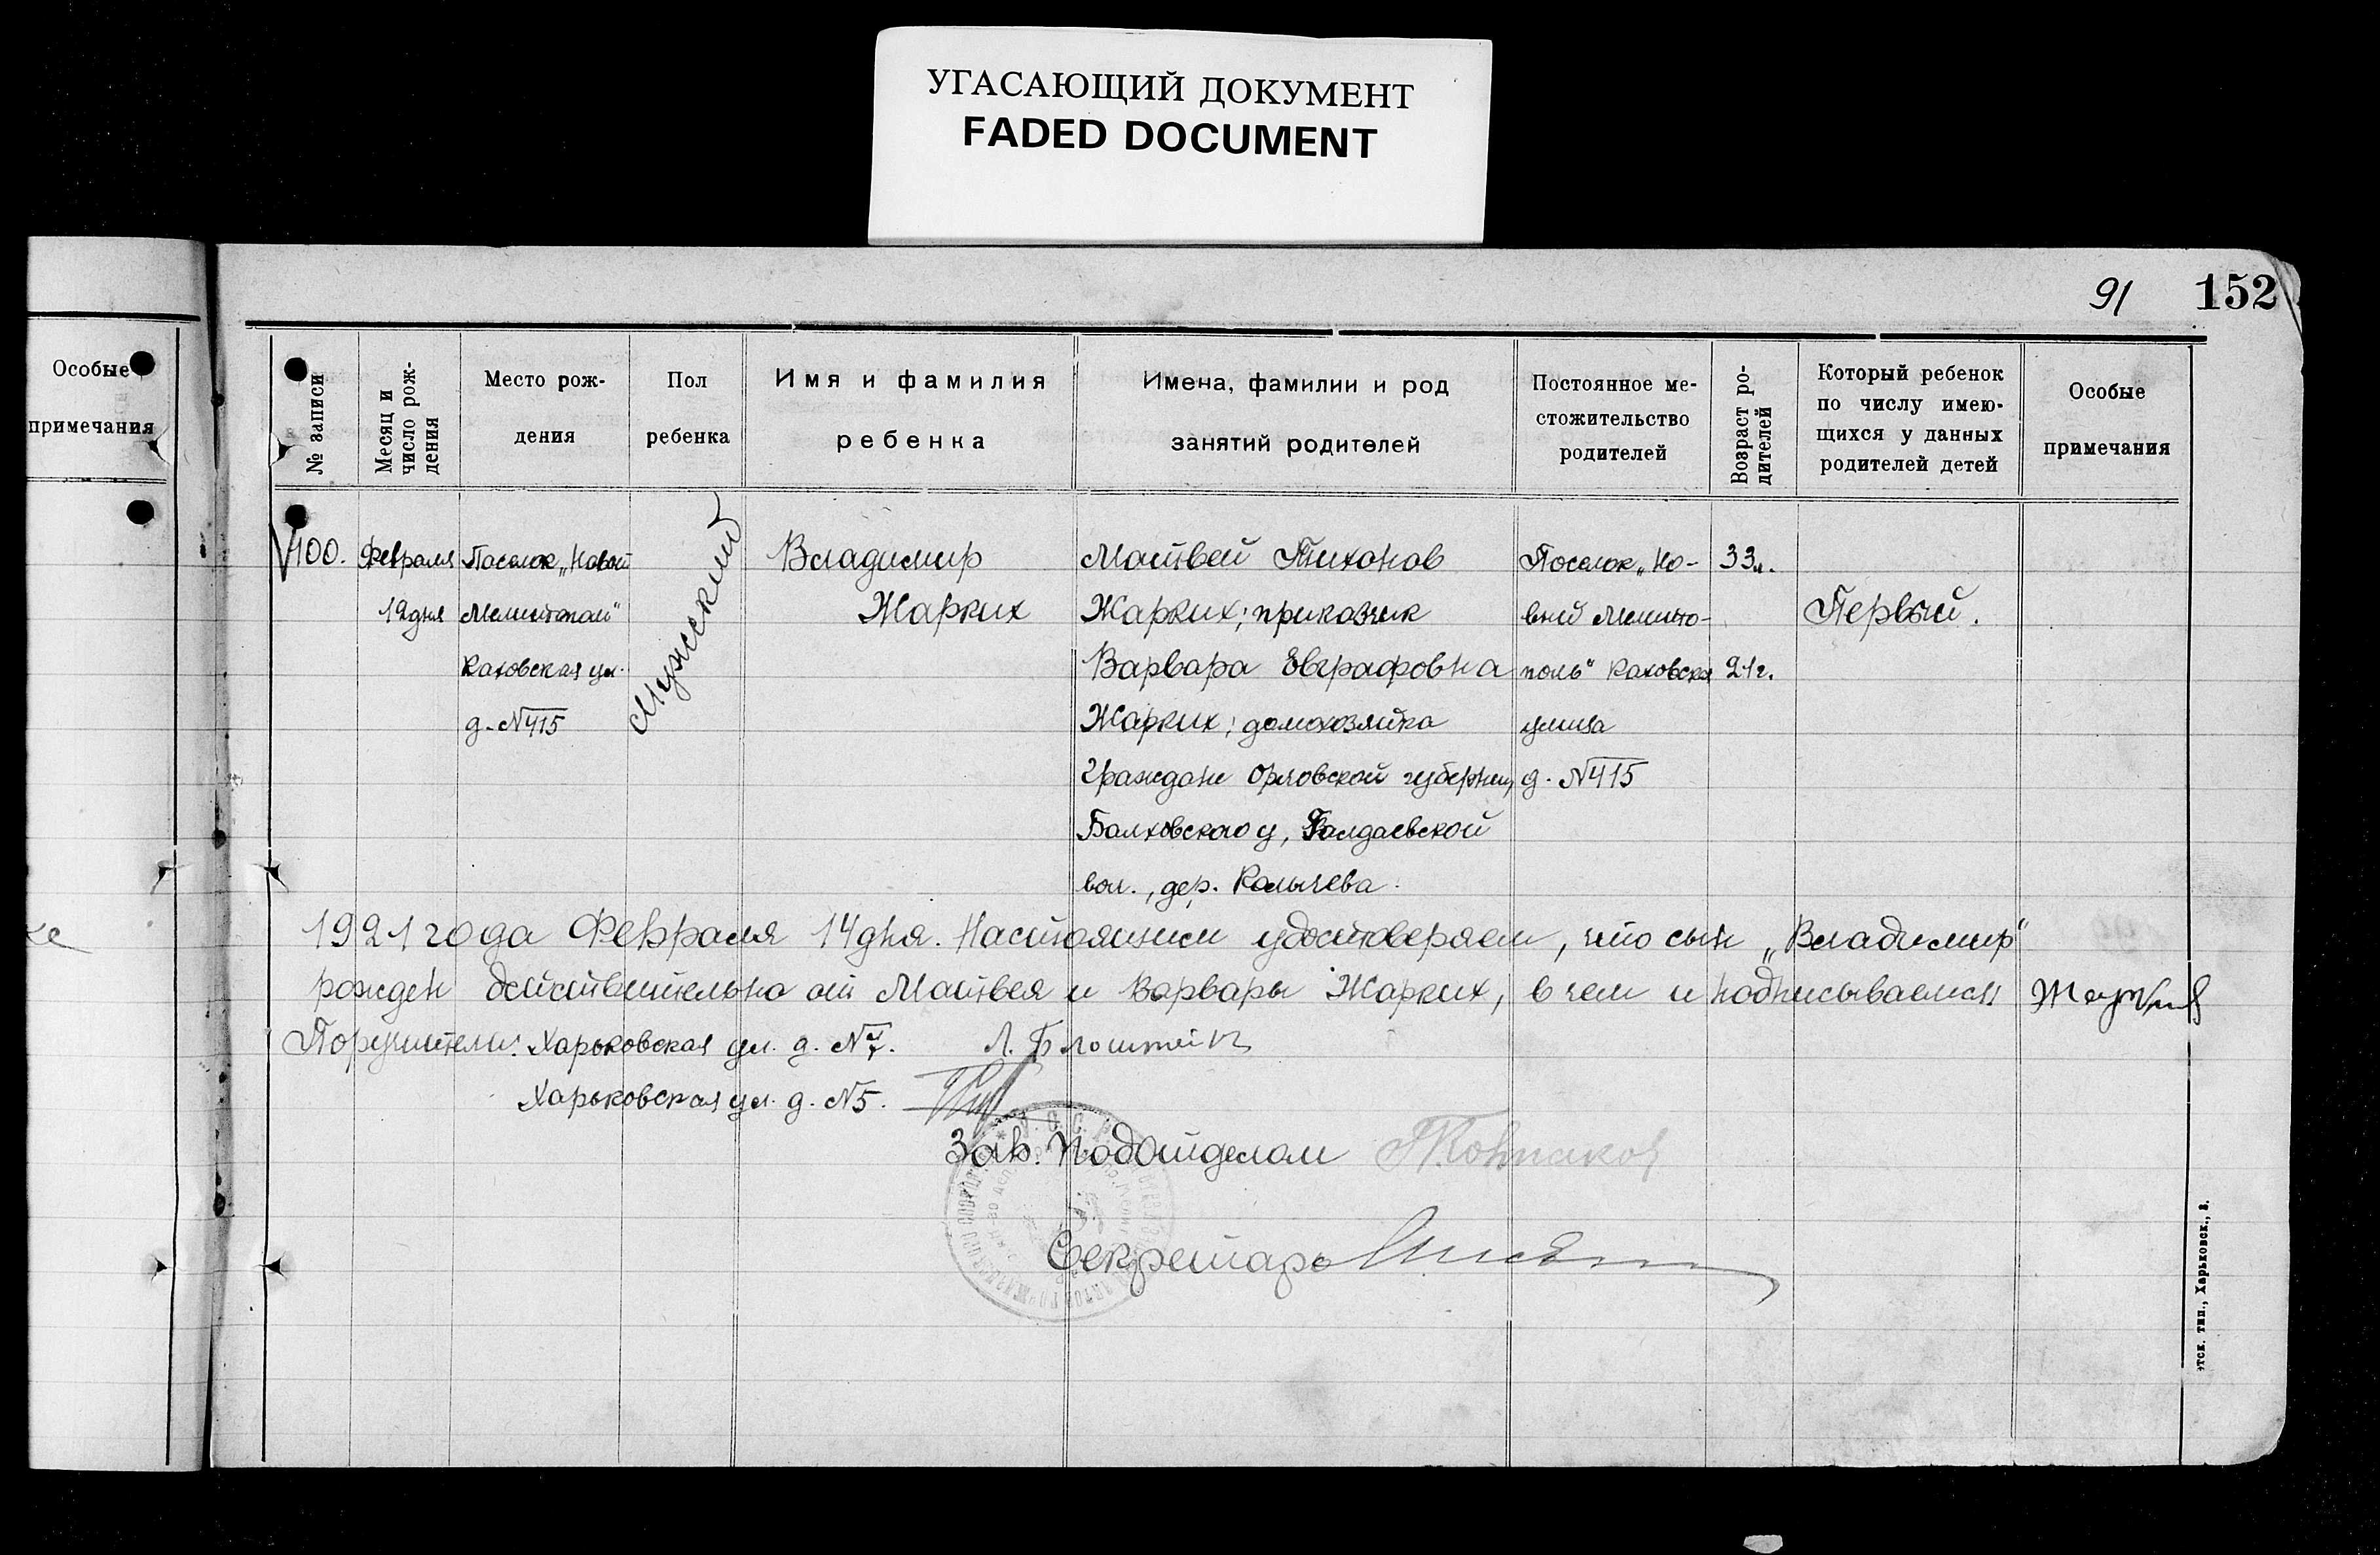 УГАСАЮЩИЙ ДОКУМЕНТ
FADED DOCUMENT
91 152
Особые
примечания
№ записи
Месяц и
число рож-
дения
Место рож-
дения
Пол
ребенка
Имя и фамилия
ребенка
Имена, фамилии и род
занятий родителей
Постоянное ме-
стожительство
родителей
Возраст ро-
дителей
Который ребенок
по числу имею-
щихся у данных
родителей детей
Особые
примечания
100.
Февраля
12 дня
Поселок „Новый
Мелитополь"
Каховская ул.
д. №415
Мужский
Владимир
Жарких
Матвей Тихонов
Жарких; приказчик
Варвара Евграфовна
Жарких; домохозяйка
Граждане Орловской губернии,
Болховского у,
вол., дер. Колычева.
Поселок „Но-
вый Мелито-
поль" Каховская
улица
д. №415
33 л.
21 г.
Первый.
1921 года Февраля 14 дня. Настоящим удостоверяем, что сын „Владимир"
рожден действительно от Матвея и Варвары Жарких, в чем и подписываемся
Поручители: Харьковская ул. д. №
Харьковская ул. д. №5.
Зав. Подотделом
Секретарь
тск. тип., Харьковск., 8.